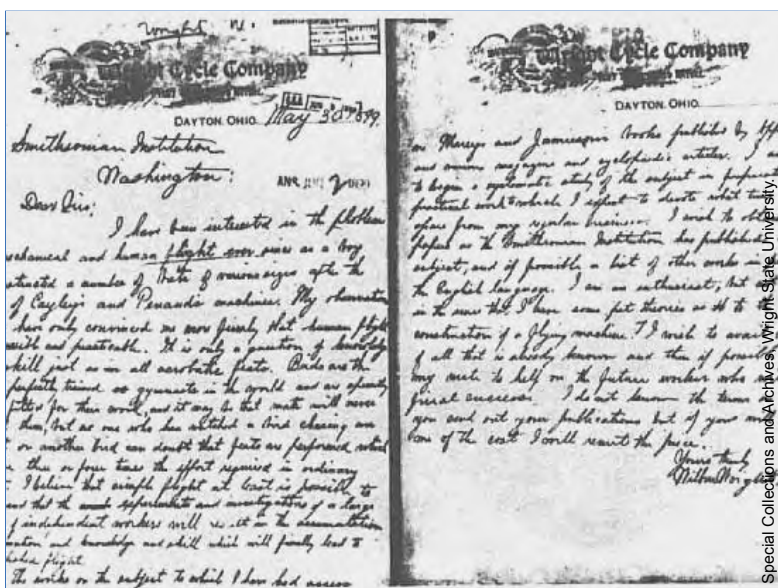 Wright W.
Wright Cycle Company
DAYTON, OHIO, May 30 1899.
Smithsonian Institution
Washington:
Dear Sirs:
I have been interested in the problem
mechanical and human flight ever since as a boy
structed a number of bats of various sizes after the
of Cayley's and Penaud's machines. My observations
have only convinced me more firmly that human flight
possible and practicable. It is only a question of knowledge
skill just as in all acrobatic feats. Birds are the
perfectly trained gymnasts in the world and are specially
fitted for their work, and it may be that man will never
them, but no one who has watched a bird chasing an
or another bird can doubt that feats are performed which
three or four times the effort required in ordinary
I believe that simple flight at least is possible to
and that the experiments and investigations of a large
of independent workers will result in the accumulation
mation and knowledge and skill which will finally lead to
flight.
The works on the subject to which I have had access
Wright Cycle Company
DAYTON, OHIO.
are Marey's and Jamieson's books published by App
and various magazine and cyclopaedic articles. I am
to begin a systematic study of the subject in preparation
practical work to which I expect to devote what time
spare from my regular business. I wish to obtain
papers as the Smithsonian Institution has published
subject, and if possible a list of other works in
the English language. I am an enthusiast, but
in the sense that I have some pet theories as to the
construction of a flying machine. I wish to avail
of all that is already known and then if possible
my mite to help on the future worker who
final success. I do not know the terms
you send out your publications but if you
me of the cost I will remit the price.
Yours truly,
Wilbur Wright
Special Collections and Archives, Wright State University